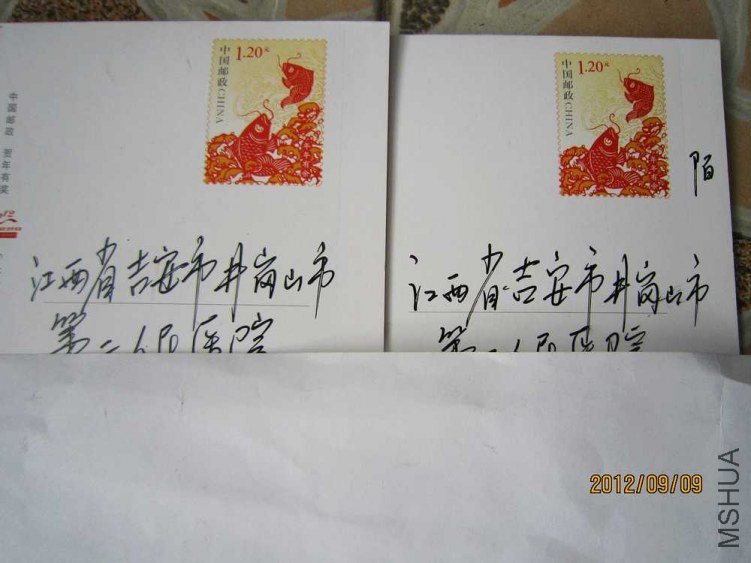 中国邮政 贺年有奖
中国邮政 CHINA
1.20元
江西省吉安市井岗山市
第二人民医院
中国邮政 CHINA
1.20元
陌
江西省吉安市井岗山市
第二人民医院
2012/09/09
MSHUA